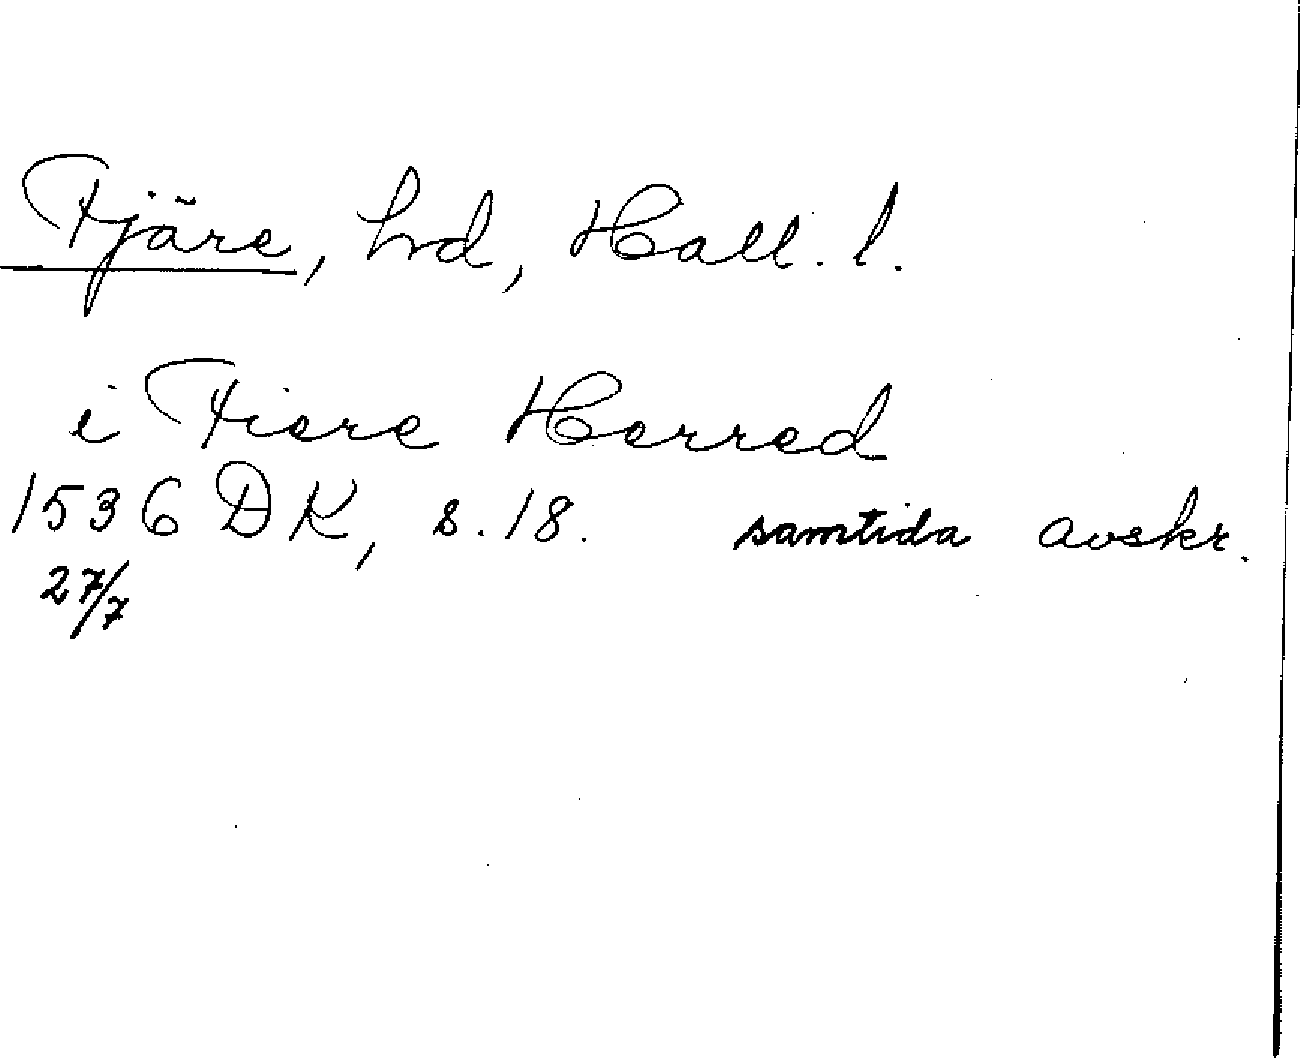 Fjäre, hrd, Hall. l.
i Fiere Herred
1536 DK, s. 18. samtida avskr.
27/7